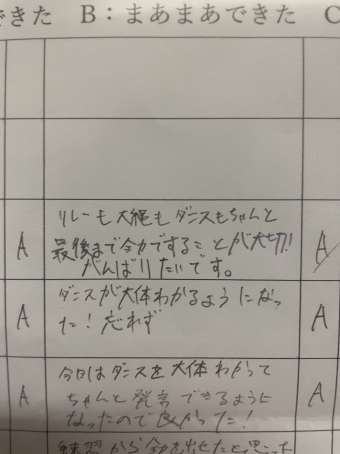 できた B：まあまあできた C
A リレーも大縄もダンスもちゃんと A
最後まで全力ですることが大切!
がんばりたいです。
A ダンスが大体わかるようになっ A
た！忘れず
A 今日はダンスを大体わかって A
ちゃんと発言できるように
なったので良かった！
練習から全力を出せたと思った